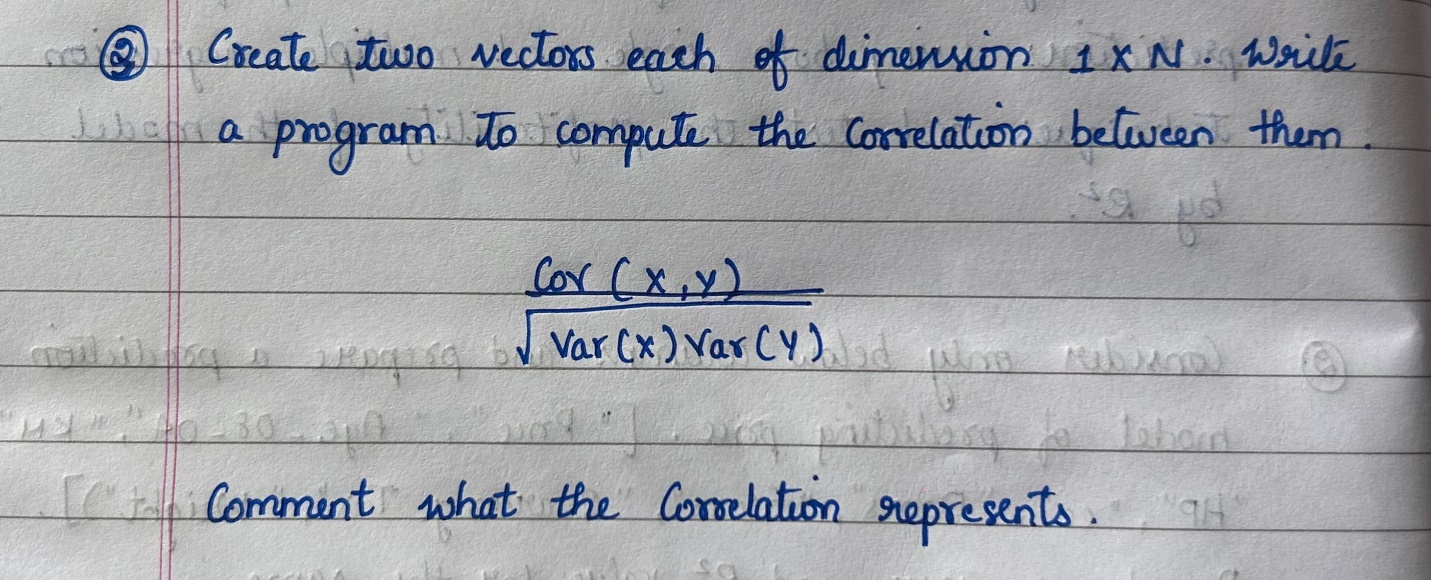 ② Create two vectors each of dimension 1 x N. Write
a program to compute the Correlation between them.
Cov (x,y)
√ Var (x) Var (Y)
Comment what the Correlation represents.